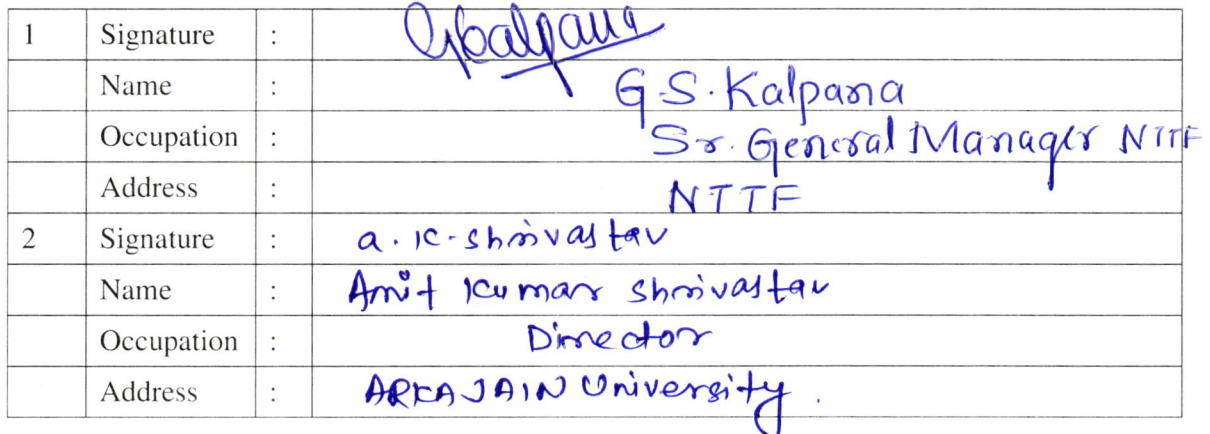 1 Signature : GSKalpana
Name : G.S. Kalpana
Occupation : Sr. General Manager NTTF
Address : NTTF
2 Signature : a.k.shrivastav
Name : Amit Kumar Shrivastav
Occupation : Director
Address : ARKA JAIN University.